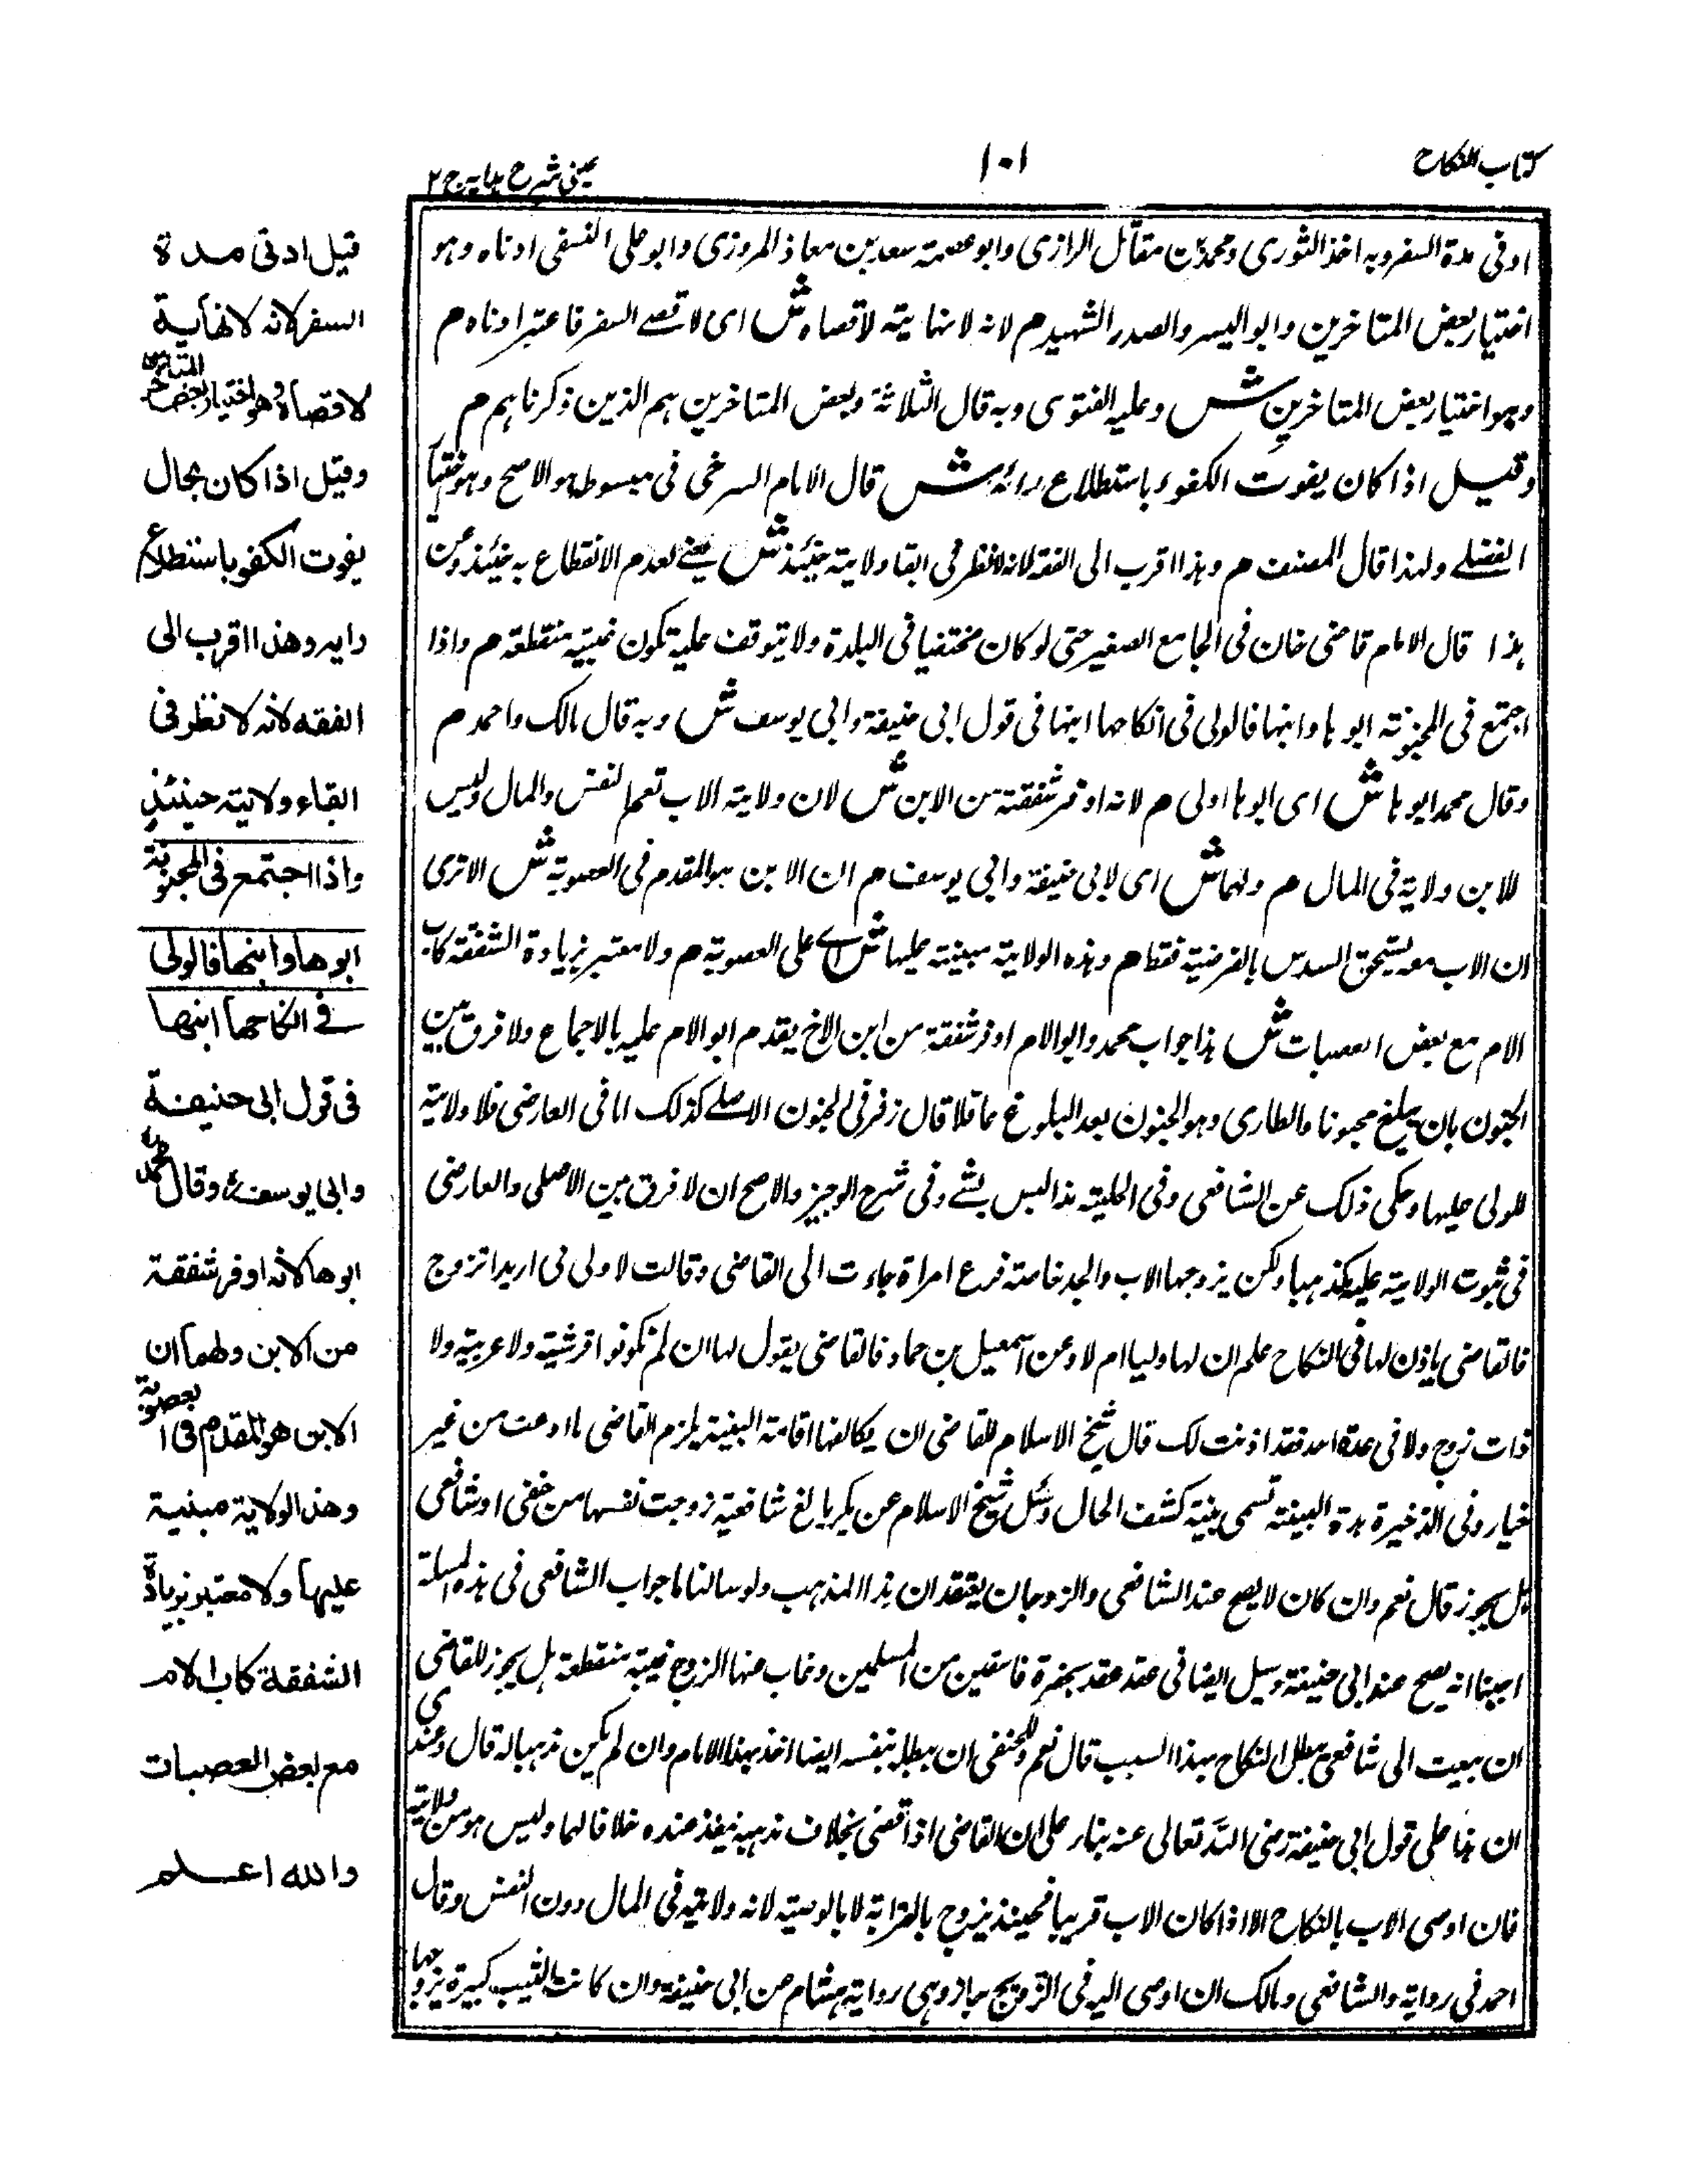 كتاب النكاح
١٠١
عينى شرح هدايه ج ٢
ادنى مدة السفر وبه اخذ الثورى ومحمد بن مقاتل الرازى وابو عصمة سعد بن معاذ المروزى وابو على النسفى ادناه وهو
اختيار بعض المتاخرين وابو اليسر والصدر الشهيد م لانه لا نهاية لاقصاه ش اى لاقصے السفر فاعتبر ادناه م
وهو اختيار بعض المتاخرين ش وعليه الفتوى وبه قال الثلاثة وبعض المتاخرين هم الذين ذكرناهم م
وقيل اذا كان يفوت الكفوء باستطلاع رائه ش قال الامام السرخسى فى مبسوطه هو الاصح وهو اختيار
الفضلے ولهذا قال المصنف م وهذا اقرب الى الفقه لانه لا نظر فى ابقاء ولايته حينئذ ش يعنے لعدم الانقطاع به حينئذ وعن
هذا قال الامام قاضى خان فى الجامع الصغير حتى لو كان مختفيا فى البلدة ولا يتوقف عليه تكون غيبته منقطعة م واذا
اجتمع فى المجنونة ابوها وابنها فالولى فى انكاحها ابنها فى قول ابى حنيفة وابى يوسف ش وبه قال مالك واحمد م
وقال محمد ابوها ش اى ابوها اولى م لانه اوفر شفقته من الابن ش لان ولاية الاب تعم النفس والمال وليس
للابن ولاية فى المال م ولهما ش اى لابى حنيفة وابى يوسف م ان الابن هو المقدم فى العصوبة ش الا ترى
ان الاب معه يستحق السدس بالفرضية فقط م وهذه الولاية مبينة عليها ش اے على العصوبة م ولا معتبر بزيادة الشفقة كاب
الام مع بعض العصبات ش هذا جواب محمد وابو الام اوفر شفقة من ابن الاخ يقدم ابو الام عليه بالاجماع ولا فرق بين
الجنون بان يبلغ مجنونا والطارى وهو الجنون بعد البلوغ عاقلا قال زفر فى الجنون الاصلے كذلك اما فى العارضى فلا ولاية
للولى عليها وحكى ذلك عن الشافعى وفى الحلية هذا ليس بشے وفى شرح الوجيز والاصح ان لا فرق بين الاصلى والعارضى
فى ثبوت الولاية عليه كمذهبنا ولكن يزوجها الاب والجد خاصة فرع امراة جاءت الى القاضى وقالت لا ولى لى اريد اتزوج
فالقاضى ياذن لها فى النكاح علم ان لها وليا ام لا وعن اسمعيل بن حماد فالقاضى يقول لها ان لم تكونوا قرشية ولا عربية ولا
ذات زوج ولا فى عدة احد فقد اذنت لك قال شيخ الاسلام للقاضى ان يكالفها اقامة البينة يلزم القاضى ما ادعت من غير
خيار وفى الذخيرة هذه البينة تسمى بينة كشف الحال وسئل شيخ الاسلام عن بكر بالغ شافعية زوجت نفسها من حنفى او شافعى
هل يجوز قال نعم وان كان لا يصح عند الشافعى والزوجان يعتقدان هذا المذهب ولو سالنا ما جواب الشافعى فى هذه المسئلة
اجبنا انه يصح عند ابى حنيفة وسيل ايضا فى عقد عقد بحضرة فاسقين من المسلمين وغاب منها الزوج غيبة منقطعة هل يجوز للقاضى
ان يبعث الى شافعى يبطل النكاح بهذا السبب قال نعم وللحنفى ان يبطله بنفسه ايضا اخذ بهذا الامام وان لم يكن مذهبا له قال وعندى
ان هذا على قول ابى حنيفة رضى الله تعالى عنه بناء على ان القاضى اذا قضى بخلاف مذهبه ينفذ عنده خلافا لهما وليس هو من ولاية
فان اوصى الاب بالنكاح الا اذا كان الاب قريبا فحينئذ يزوج بالقرابة لا بالوصية لانه ولايته فى المال دون النفس وقال
احمد فى رواية والشافعى ومالك ان اوصى اليه فى التزويج جاز وهى رواية هشام عن ابى حنيفة وان كانت الثيب كبيرة يزوجها
قيل ادنى مدة
السفر لانه لا نهاية
لاقصاه وهو اختيار بعض المتاخرين
وقيل اذا كان بحال
يفوت الكفو باستطلاع
رايه وهذا اقرب الى
الفقه لانه لا نظر فى
ابقاء ولايته حينئذ
واذا اجتمع فى المجنونة
ابوها وابنها فالولى
فے انكاحها ابنها
فى قول ابى حنيفة
وابى يوسف وقال محمد
ابوها لانه اوفر شفقة
من الابن ولهما ان
الابن هو المقدم فى العصوبة
وهذه الولاية مبنية
عليها ولا معتبر بزيادة
الشفقة كاب الام
مع بعض العصبات
والله اعلم